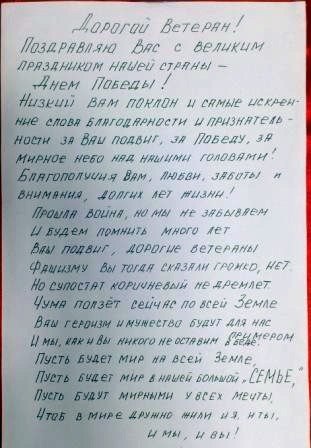 Дорогой Ветеран!
Поздравляю Вас с великим
праздником нашей страны –
Днем Победы!
Низкий вам поклон и самые искрен-
ние слова благодарности и признатель-
ности за Ваш подвиг, за Победу, за
мирное небо над нашими головами!
Благополучия Вам, любви, заботы и
внимания, долгих лет жизни!
Прошла война, но мы не забываем
И будем помнить много лет
Ваш подвиг, дорогие ветераны
Фашизму вы тогда сказали громко, нет.
Но супостат коричневый не дремлет.
Чума ползёт сейчас по всей Земле
Ваш героизм и мужество будут для нас
примером
И мы, как и Вы никого не оставим в беде.
Пусть будет мир на всей Земле,
Пусть будет мир в нашей большой „СЕМЬЕ,"
Пусть будут мирными у всех мечты,
Чтоб в мире дружно жили и я, и ты,
и мы, и вы!